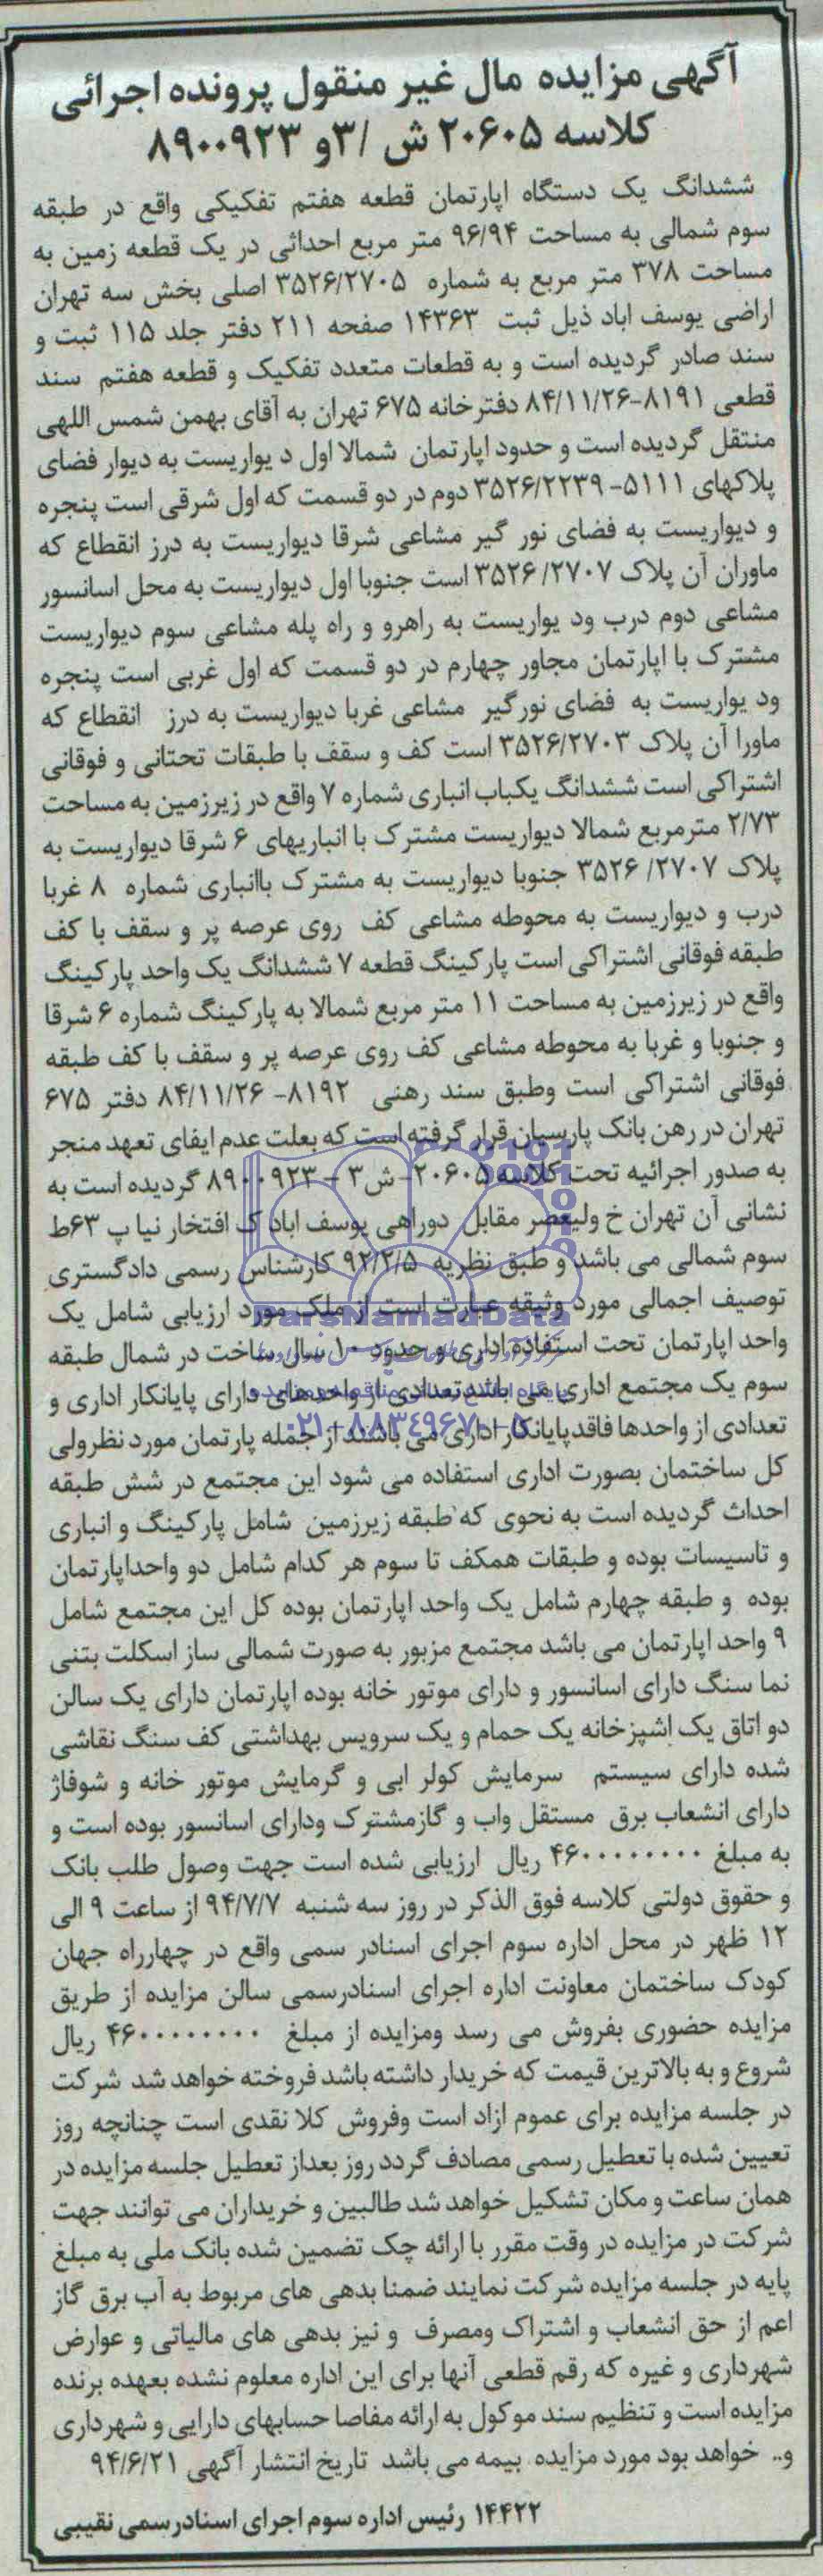 آگهی مزایده مال غیر منقول پرونده اجرائی
کلاسه ۲۰۶۰۵ ش /۳و ۸۹۰۰۹۲۳
ششدانگ یک دستگاه اپارتمان قطعه هفتم تفکیکی واقع در طبقه
سوم شمالی به مساحت ۹۶/۹۴ متر مربع احداثی در یک قطعه زمین به
مساحت ۳۷۸ متر مربع به شماره ۳۵۲۶/۲۷۰۵ اصلی بخش سه تهران
اراضی یوسف اباد ذیل ثبت ۱۴۳۶۳ صفحه ۲۱۱ دفتر جلد ۱۱۵ ثبت و
سند صادر گردیده است و به قطعات متعدد تفکیک و قطعه هفتم سند
قطعی ۸۱۹۱-۸۴/۱۱/۲۶ دفترخانه ۶۷۵ تهران به آقای بهمن شمس اللهی
منتقل گردیده است و حدود اپارتمان شمالا اول د یواریست به دیوار فضای
پلاکهای ۵۱۱۱- ۳۵۲۶/۲۲۳۹ دوم در دو قسمت که اول شرقی است پنجره
و دیواریست به فضای نور گیر مشاعی شرقا دیواریست به درز انقطاع که
ماوران آن پلاک ۳۵۲۶/۲۷۰۷ است جنوبا اول دیواریست به محل اسانسور
مشاعی دوم درب ود یواریست به راهرو و راه پله مشاعی سوم دیواریست
مشترک با اپارتمان مجاور چهارم در دو قسمت که اول غربی است پنجره
ود یواریست به فضای نورگیر مشاعی غربا دیواریست به درز انقطاع که
ماورا آن پلاک ۳۵۲۶/۲۷۰۳ است کف و سقف با طبقات تحتانی و فوقانی
اشتراکی است ششدانگ یکباب انباری شماره ۷ واقع در زیرزمین به مساحت
۲/۷۳ مترمربع شمالا دیواریست مشترک با انباریهای ۶ شرقا دیواریست به
پلاک ۳۵۲۶/۲۷۰۷ جنوبا دیواریست به مشترک باانباری شماره ۸ غربا
درب و دیواریست به محوطه مشاعی کف روی عرصه پر و سقف با کف
طبقه فوقانی اشتراکی است پارکینگ قطعه ۷ ششدانگ یک واحد پارکینگ
واقع در زیرزمین به مساحت ۱۱ متر مربع شمالا به پارکینگ شماره ۶ شرقا
و جنوبا و غربا به محوطه مشاعی کف روی عرصه پر و سقف با کف طبقه
فوقانی اشتراکی است وطبق سند رهنی ۸۱۹۲- ۸۴/۱۱/۲۶ دفتر ۶۷۵
تهران در رهن بانک پارسیان قرار گرفته است که بعلت عدم ایفای تعهد منجر
به صدور اجرائیه تحت کلاسه ۲۰۶۰۵- ش۳ - ۸۹۰۰۹۲۳ گردیده است به
نشانی آن تهران خ ولیعصر مقابل دوراهی یوسف اباد ک افتخار نیا پ ۶۳ط
سوم شمالی می باشد و طبق نظریه ۹۲/۲/۵ کارشناس رسمی دادگستری
توصیف اجمالی مورد وثیقه عبارت است از ملک مورد ارزیابی شامل یک
ParsNamadData
واحد اپارتمان تحت استفاده اداری و حدود ۱۰ سال ساخت در شمال طبقه
سوم یک مجتمع اداری می باشد تعدادی از واحدهای دارای پایانکار اداری و
تعدادی از واحدها فاقد پایانکار اداری می باشند از جمله پارتمان مورد نظرولی
۰۲۱-۸۸۳۴۹۶۷۰-۵
کل ساختمان بصورت اداری استفاده می شود این مجتمع در شش طبقه
احداث گردیده است به نحوی که طبقه زیرزمین شامل پارکینگ و انباری
و تاسیسات بوده و طبقات همکف تا سوم هر کدام شامل دو واحداپارتمان
بوده و طبقه چهارم شامل یک واحد اپارتمان بوده کل این مجتمع شامل
۹ واحد اپارتمان می باشد مجتمع مزبور به صورت شمالی ساز اسکلت بتنی
نما سنگ دارای اسانسور و دارای موتور خانه بوده اپارتمان دارای یک سالن
دو اتاق یک اشپزخانه یک حمام و یک سرویس بهداشتی کف سنگ نقاشی
شده دارای سیستم سرمایش کولر ابی و گرمایش موتور خانه و شوفاژ
دارای انشعاب برق مستقل واب و گازمشترک ودارای اسانسور بوده است و
به مبلغ ۴۶۰۰۰۰۰۰۰۰ ریال ارزیابی شده است جهت وصول طلب بانک
و حقوق دولتی کلاسه فوق الذکر در روز سه شنبه ۹۴/۷/۷ از ساعت ۹ الی
۱۲ ظهر در محل اداره سوم اجرای اسنادر سمی واقع در چهارراه جهان
کودک ساختمان معاونت اداره اجرای اسنادرسمی سالن مزایده از طریق
مزایده حضوری بفروش می رسد ومزایده از مبلغ ۴۶۰۰۰۰۰۰۰۰ ریال
شروع و به بالاترین قیمت که خریدار داشته باشد فروخته خواهد شد شرکت
در جلسه مزایده برای عموم ازاد است وفروش کلا نقدی است چنانچه روز
تعیین شده با تعطیل رسمی مصادف گردد روز بعداز تعطیل جلسه مزایده در
همان ساعت و مکان تشکیل خواهد شد طالبین و خریداران می توانند جهت
شرکت در مزایده در وقت مقرر با ارائه چک تضمین شده بانک ملی به مبلغ
پایه در جلسه مزایده شرکت نمایند ضمنا بدهی های مربوط به آب برق گاز
اعم از حق انشعاب و اشتراک ومصرف و نیز بدهی های مالیاتی و عوارض
شهرداری و غیره که رقم قطعی آنها برای این اداره معلوم نشده بعهده برنده
مزایده است و تنظیم سند موکول به ارائه مفاصا حسابهای دارایی و شهرداری
و.. خواهد بود مورد مزایده بیمه می باشد تاریخ انتشار آگهی ۹۴/۶/۲۱
۱۴۴۲۲ رئیس اداره سوم اجرای اسنادرسمی نقیبی